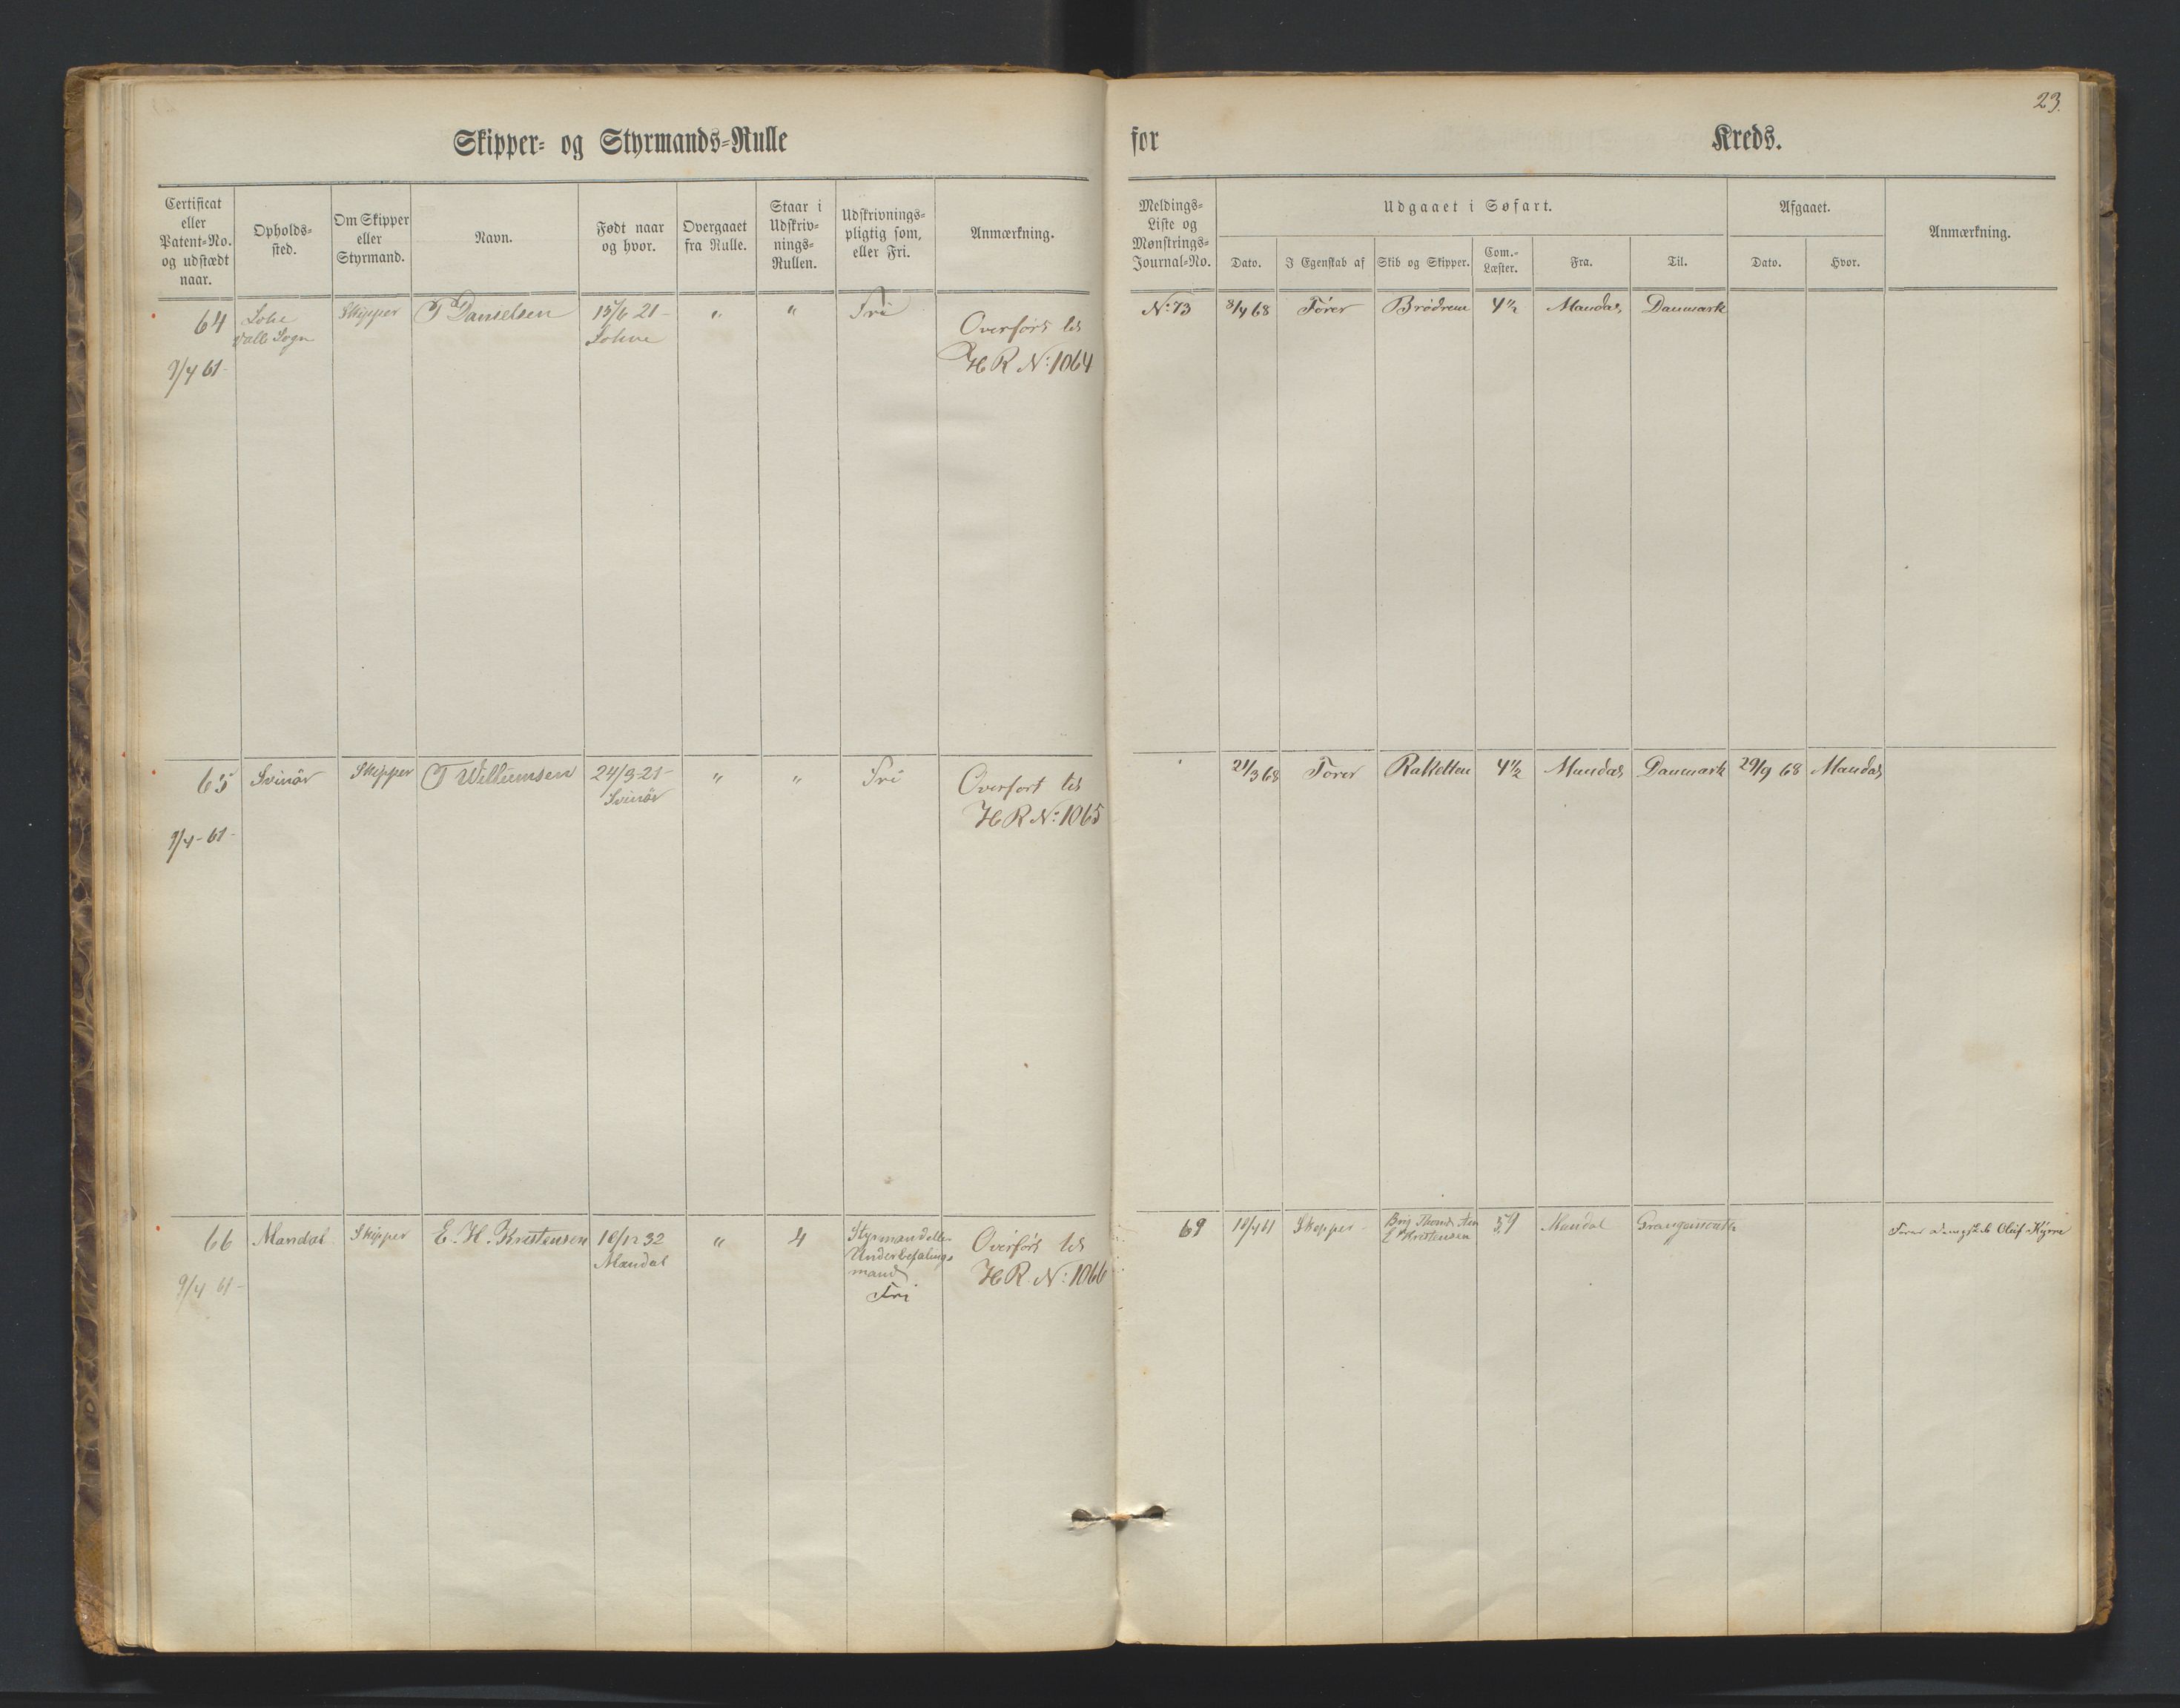 23.
Skipper- og Styrmands-Rulle for Kreds.
Certificat eller Patent-No. og udstædt naar.
Opholds-sted.
Om Skipper eller Styrmand.
Navn.
Født naar og hvor.
Overgaaet fra Rulle.
Staar i Udskriv-nings-Rullen.
Udskrivnings-pligtig som, eller Fri.
Anmærkning.
Meldings-Liste og Mønstrings-Journal-No.
Udgaaet i Søfart.
Dato.
I Egenskab af
Skib og Skipper.
Com.-Læster.
Fra.
Til.
Afgaaet.
Dato.
Hvor.
Anmærkning.
64 Skipper T Danielsen 15/6 21- " " Fri Overført til
Sogn
9/4 61- HR No: 1064
No: 73 8/4 68 Fører Brødrene 4½ Mandal Danmark
65 Svinör Skipper T Willumsen 24/3-21- " " Fri Overført til
Svinör HR No: 1065
9/4-61-
21/3 68 Fører Raketten 4½ Mandal Danmark 29/9 68 Mandal
66 Mandal Skipper E. H. Kristensen 10/12 32 " 4 Styrmand eller
Mandal Underbefalings-
mand
Fri
Overført til
HR No: 1066
9/4 61-
69 10/4 61 Skipper Brig
E Kristensen
Mandal Grangemouth
Oluf Kyrre